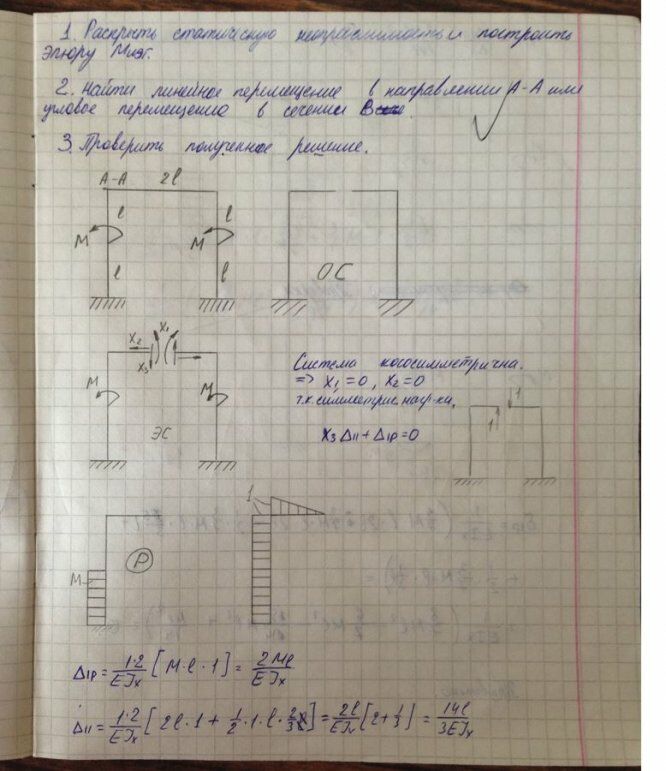 1. Раскрыть статическую неопределимость и построить
эпюру Mизг.
2. Найти линейное перемещение в направлении A-A или
угловое перемещение в сечении B
3. Проверить полученное решение.
A-A 2l
l l
M M
l l
ОС
X₁
X₂
X₃
M M
ЭС
Система кососимметрична.
=> X₁=0, X₂=0
т.к. симметрис. нагр-ка.
X₃ Δ₁₁ + Δ₁p = 0
1 1
M P 1
Δ₁p = 1·2/EJx [M·l·1] = 2Ml/EJx
Δ₁₁ = 1·2/EJx [2l·1 + 1/2·1·l·2/3] = 2l/EJx [2+1/3] = 14l/3EJx